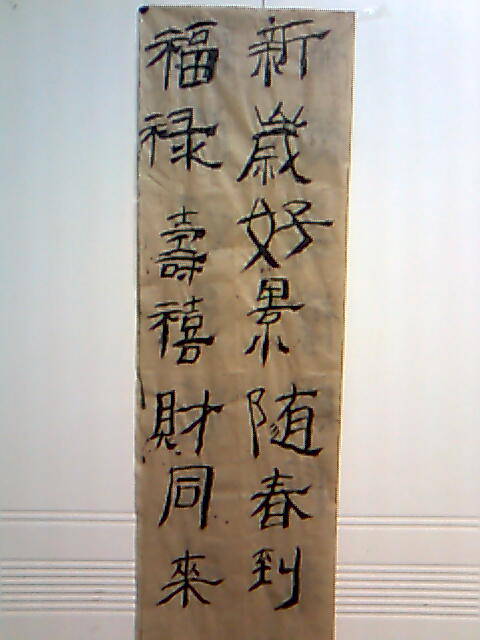 新歲好景随春到
福禄壽禧財同來